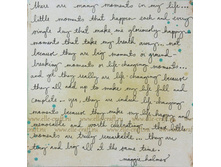 there are many moments in my life...
little moments that happen each and every
single day that make me gloriously happy.
moments that take my breath away, not
because they are big moments or ground
breaking moments or life changing moments...
and yet they really are life changing because
they all add up to make my life full and
complete. yes, they are indeed life changing
moments because they make life happy and
memorable and worth celebrating. these little
moments are truly remarkable... they are
tiny and big all at the same time.
- maggie holmes